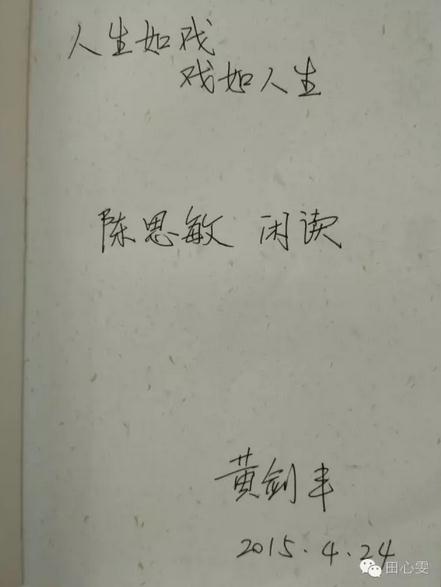 人生如戏
戏如人生
陈思敏 闲读
黄剑丰
2015.4.24
田心雯